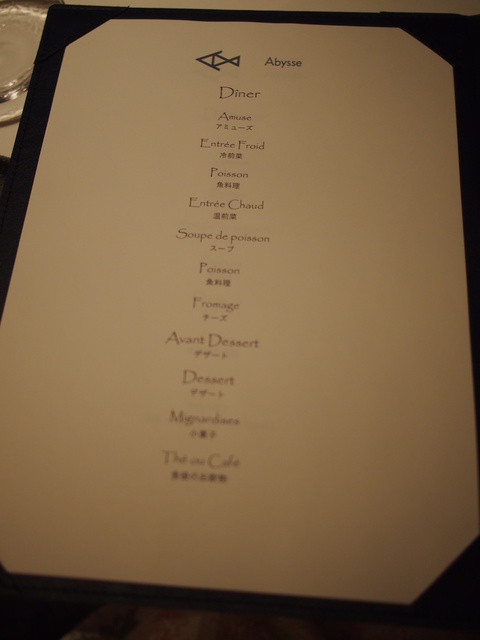 Abysse
Dîner
Amuse
アミューズ
Entrée Froid
冷前菜
Poisson
魚料理
Entrée Chaud
温前菜
Soupe de poisson
スープ
Poisson
魚料理
Fromage
チーズ
Avant Dessert
デザート
Dessert
デザート
Mignardises
小菓子
Thé ou Café
食後のお飲物